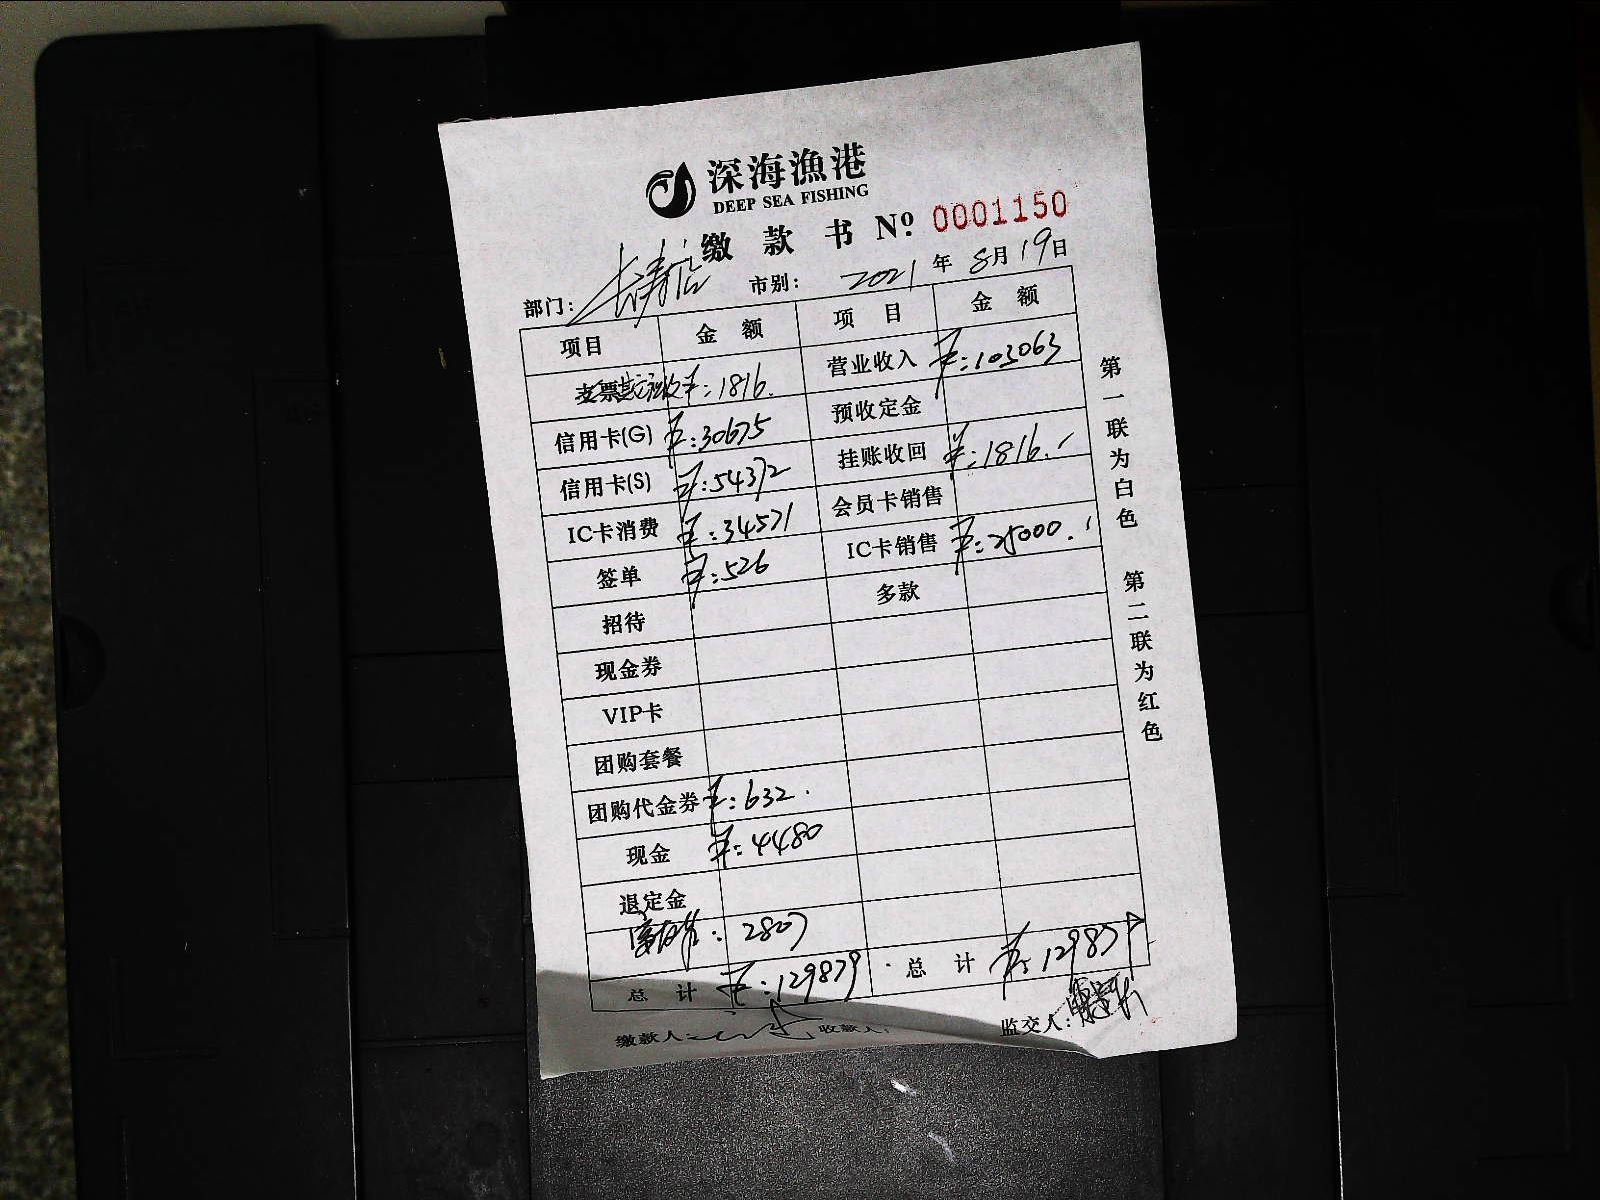 深海漁港
DEEP SEA FISHING
缴款书 Nº. 0001150
部门: 长涛店 市别: 2021年8月19日
项目 金额 项目 金额
支票 ¥:1816. 营业收入 ¥:103063
信用卡(G) ¥:30675 预收定金
信用卡(S) ¥:54372 挂账收回 ¥:1816.
IC卡消费 ¥:34571 会员卡销售
签单 ¥:526 IC卡销售 ¥:25000.
招待 多款
现金券
VIP卡
团购套餐
团购代金券 ¥:632.
现金 ¥:4480
退定金
: 2807
总计 ¥:129879 总计 ¥:129879
缴款人: 收款人: 监交人:
第一联为白色 第二联为红色